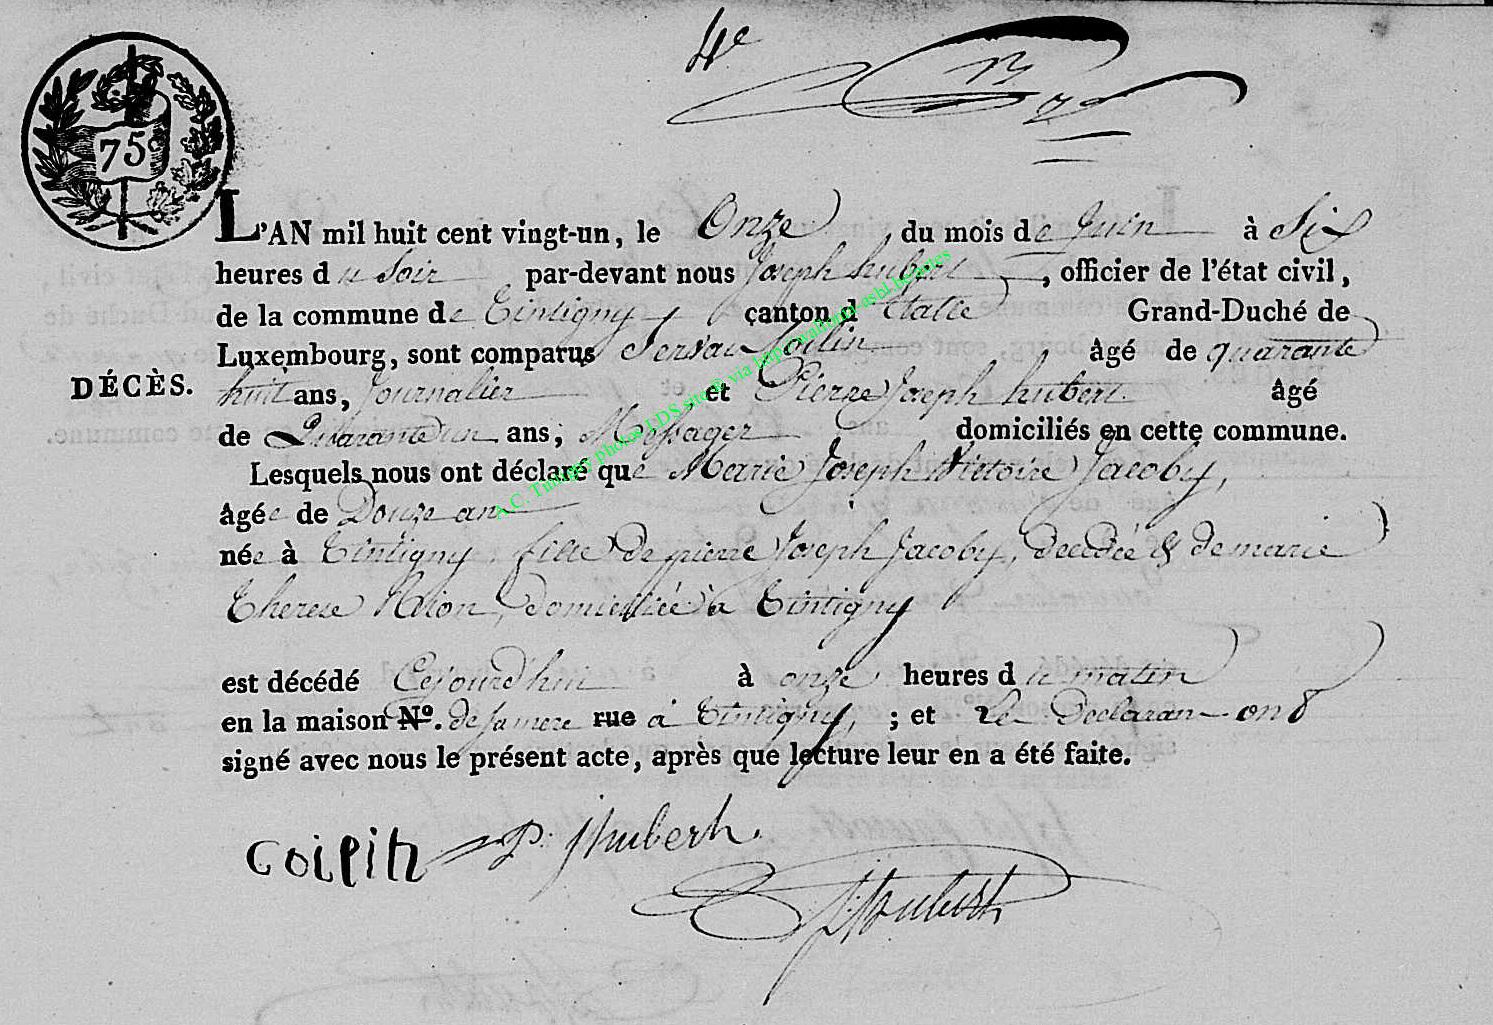 4e
75c
L'AN mil huit cent vingt-un, le Onze du mois de Juin à Six
heures du Soir, par-devant nous Joseph hubert, officier de l'état civil,
de la commune de Tintigny canton d'Etalle Grand-Duché de
Luxembourg, sont comparus Servai Goilin âgé de quarante
DÉCÈS.
huit ans, Journalier et Pierre Joseph hubert âgé
de Quarante un ans; Messager domiciliés en cette commune.
Lesquels nous ont déclaré que Marie Joseph Victoire Jacoby,
âgée de Douze an
née à Tintigny, fille de pierre Joseph Jacoby, décédée & de marie
Therese domiciliée à Tintigny
est décédé Cejourd'hui à onze heures du matin
en la maison No. de sa mere rue à Tintigny, ; et Les Declarans ont
signé avec nous le présent acte, après que lecture leur en a été faite.
P. J hubert.
J. hubert
A.C. Tintigny photos LDS site